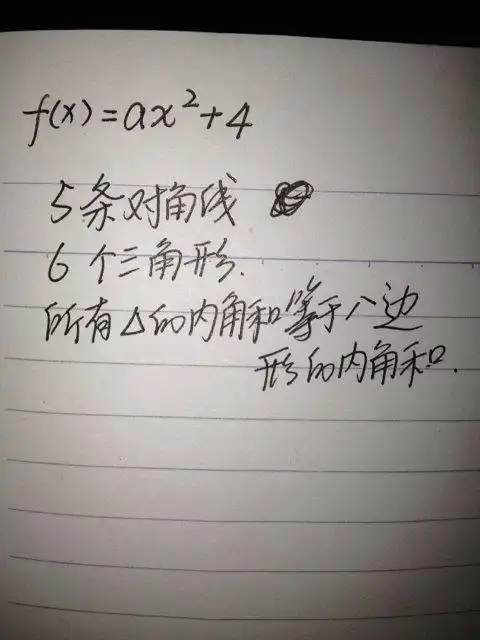 f(x)=ax²+4
5条对角线
6个三角形.
所有△的内角和等于八边
形的内角和.